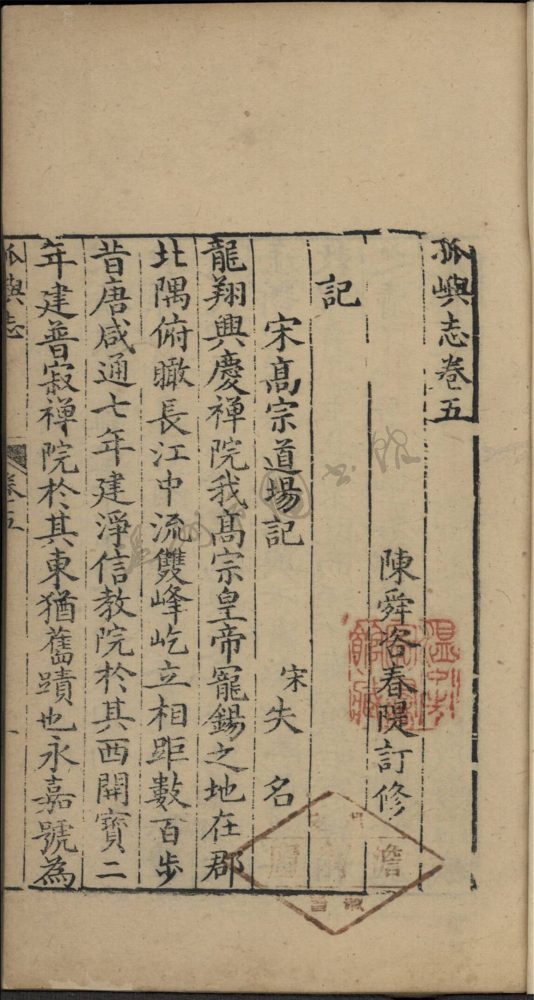 孤嶼志卷五
陳舜咨春隄訂修
記
宋高宗道場記
宋失名
龍翔興慶禅院我高宗皇帝寵錫之地在郡
北隅俯瞰長江中流雙峰屹立相距數百步
昔唐咸通七年建淨信教院於其西開寳二
年建普寂禅院於其東猶舊蹟也永嘉號為
孤嶼志
卷五